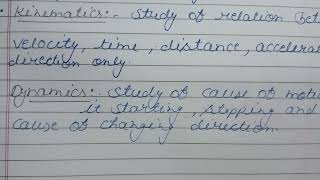 Kinematics:- study of relation bet
velocity, time, distance, accelerat
direction only.
Dynamics:- study of cause of motio
it starting, stopping and
cause of changing direction.